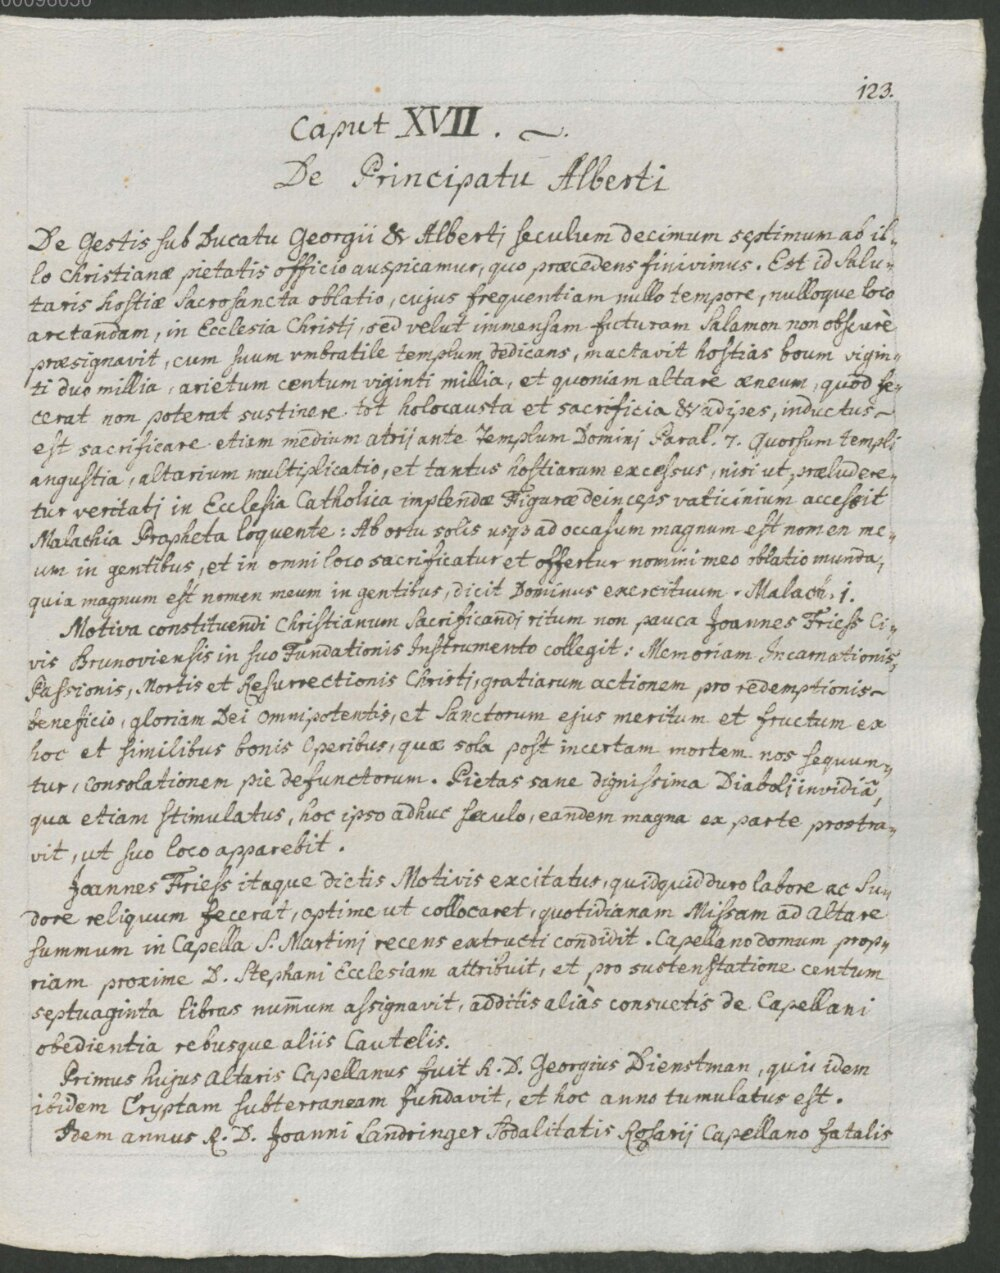 00096050
123.
Caput XVII. ~.
De Principatu Alberti
De Gestis sub Ducatu Georgii & Alberti seculum decimum septimum ab il-
lo Christianæ pietatis officio auspicamur, quo præcedens finivimus. Est id Salu-
taris hostiæ Sacrosancta oblatio, cujus frequentiam nullo tempore, nulloque loco
arctandam, in Ecclesia Christi, sed velut immensam futuram Salamon non obscurè
præsignavit, cum suum vmbratile templum dedicans, mactavit hostias boum vigin-
ti duo millia, arietum centum viginti millia, et quoniam altare æneum, quod fe-
cerat non poterat sustinere tot holocausta et sacrificia & adipes, inductus
est sacrificare etiam medium atrij ante Templum Dominj Paral. 7. Quorsum templi
angustia, altarium multiplicatio, et tantus hostiarum excessus, nisi ut præludere-
tur veritatj in Ecclesia Catholica implendæ Figuræ deinceps vaticinium accessit
Malachia Propheta loquente: Ab ortu solis usqз ad occasum magnum est nomen me-
um in gentibus, et in omni loco sacrificatur et offertur nomini meo oblatio munda,
quia magnum est nomen meum in gentibus, dicit Dominus exercituum. Malach. 1.
Motiva constituendi Christianum Sacrificandj ritum non pauca Joannes Friess Ci-
vis Brunoviensis in suo Fundationis Instrumento collegit: Memoriam Incarnationis,
Passionis, Mortis et Resurrectionis Christj, gratiarum actionem pro redemptionis
beneficio, gloriam Dei omnipotentis, et Sanctorum ejus meritum et fructum ex
hoc et similibus bonis Operibus, quæ sola post incertam mortem nos sequun-
tur, consolationem pie defunctorum. Pietas sane dignissima Diabolj invidiâ,
qua etiam stimulatus, hoc ipso adhuc seculo, eandem magna ex parte prostra-
vit, ut suo loco apparebit.
Joannes Friess itaque dictis Motivis excitatus, quidquid duro labore ac su-
dore reliquum fecerat, optime ut collocaret, quotidianam Missam ad altare
summum in Capella S. Martinj recens extructi condidit. Capellano domum prop-
riam proxime D. Stephani Ecclesiam attribuit, et pro sustenstatione centum
septuaginta libras num̄um assignavit, additis aliàs consuetis de Capellani
obedientia rebusque aliis Cautelis.
Primus hujus Altaris Capellanus fuit R. D. Georgius Dienstman, quis idem
ibidem Cryptam subterraneam fundavit, et hoc anno tumulatus est.
Idem annus R. D. Joanni Landringer Sodalitatis Rosarij Capellano fatalis